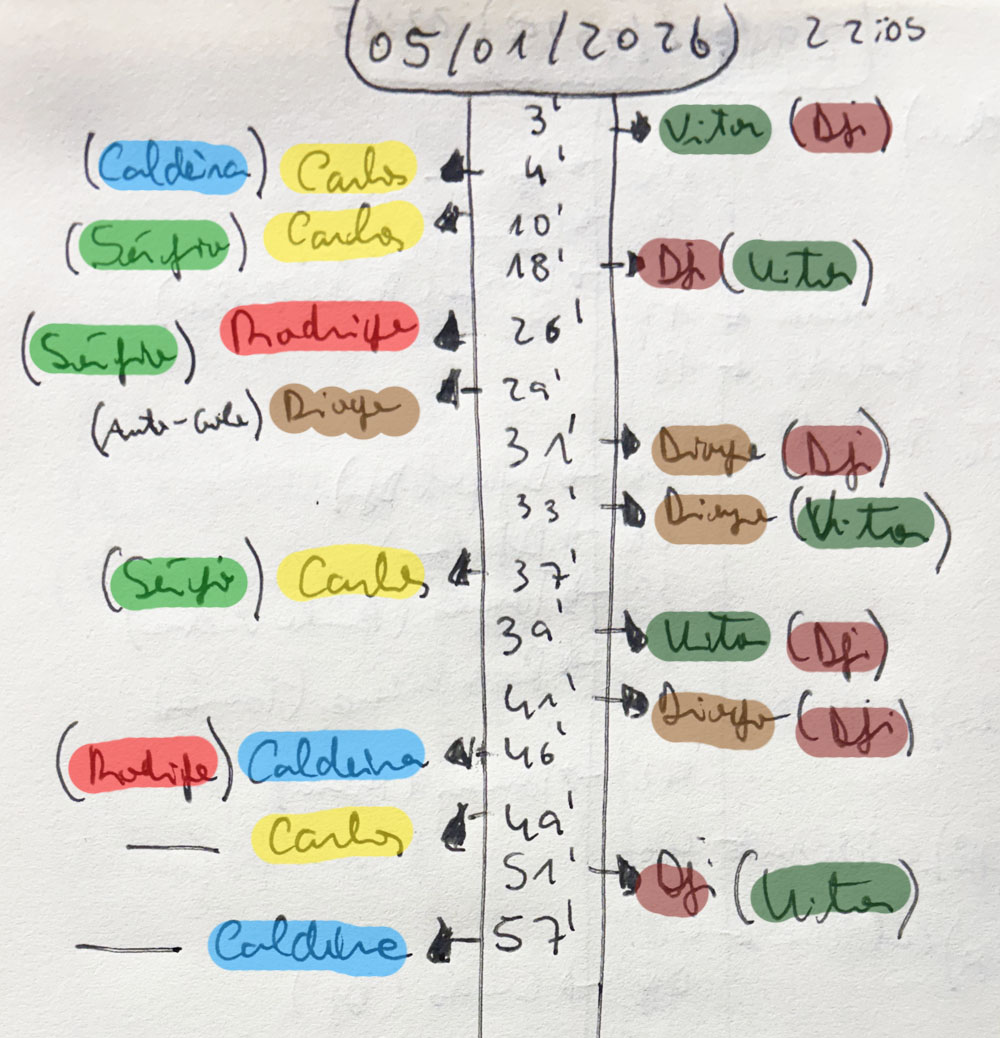 05/01/2026 22:05
3' Vitor (Dji)
(Caldeira) Carlos 4'
(Sérgio) Carlos 10'
18' Dji (Vitor)
(Sérgio) Rodrigo 26'
(Auto-Golo) Diogo 29'
31' Diogo (Dji)
33' Diogo (Vitor)
(Sérgio) Carlos 37'
39' Vitor (Dji)
41' Diogo (Dji)
(Rodrigo) Caldeira 46'
— Carlos 49'
51' Dji (Vitor)
— Caldeira 57'